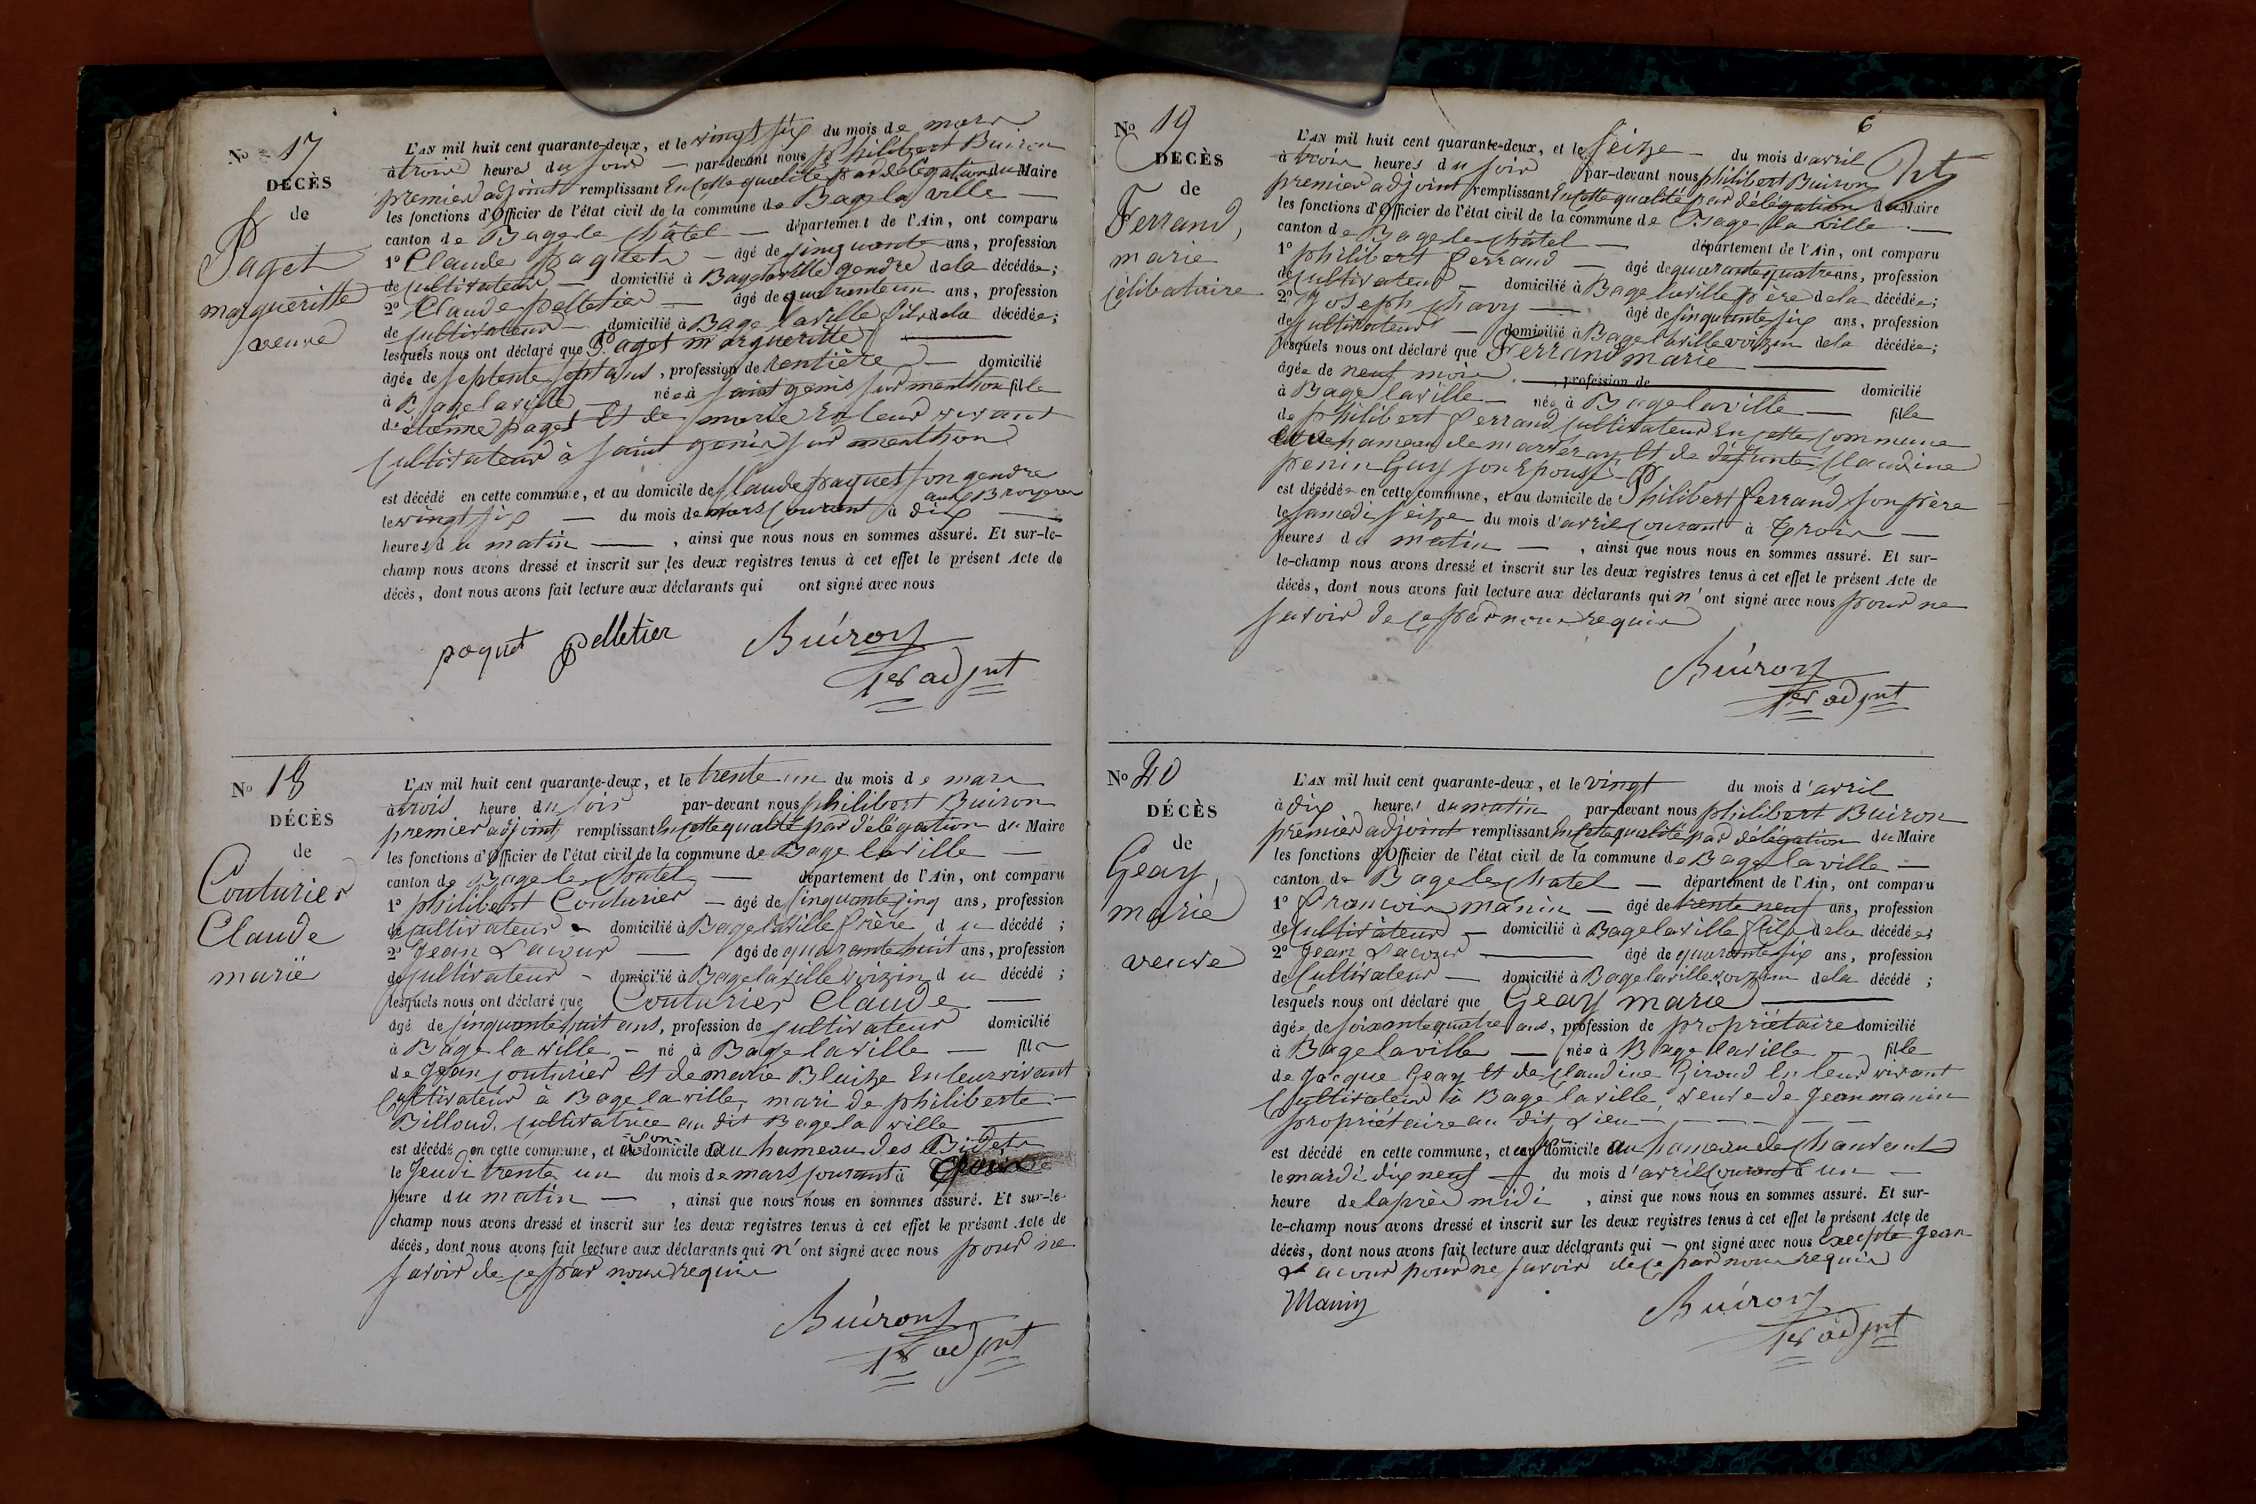 No 17
DÉCÈS
de
Paget
margueritte
veuve
L'AN mil huit cent quarante-deux, et le vingt six du mois de mars
à trois heures du soir — par-devant nous philibert Buiron
premier adjoint remplissant En cette qualité par délégation du Maire
les fonctions d'Officier de l'état civil de la commune de Bage la ville —
canton de Bage le châtel — département de l'Ain, ont comparu
1º Claude paquet — âgé de cinquante ans, profession
de cultivateur — domicilié à Bagelaville gendre de la décédée;
2º Claude pelletier — âgé de quarante un ans, profession
de cultivateur — domicilié à Bage laville fils de la décédée;
lesquels nous ont déclaré que Paget margueritte —
âgée de septente sept ans, profession de rentière — domicilié
à Bagelaville — née à saint genis sur menthon fille
d'étienne paget Et de marie En leur vivant
cultivateur à saint genis sur menthon
est décédé en cette commune, et au domicile de Claude paquet son gendre
aux Broyeres
le vingt six — du mois de mars courant à dix —
heures du matin — , ainsi que nous nous en sommes assuré. Et sur-le-
champ nous avons dressé et inscrit sur les deux registres tenus à cet effet le présent Acte de
décès, dont nous avons fait lecture aux déclarants qui ont signé avec nous
paquet pelletier Buiron
1er adjnt
No 18
DÉCÈS
de
Couturier
Claude
marié
L'AN mil huit cent quarante-deux, et le trente un du mois de mars
à trois heure du soir par-devant nous philibert Buiron
premier adjoint remplissant En cette qualité par délégation du Maire
les fonctions d'Officier de l'état civil de la commune de Bage laville —
canton de Bage le Chatel — département de l'Ain, ont comparu
1º philibert Couturier — âgé de cinquante cinq ans, profession
de cultivateur — domicilié à Bagelaville frère du décédé;
2º Jean Lacour — âgé de quarante huit ans, profession
de cultivateur — domicilié à Bagelaville voizin du décédé;
lesquels nous ont déclaré que Couturier Claude —
âgé de cinquante huit ans, profession de cultivateur domicilié
à Bage la ville — né à Bage laville — fils
de Jean couturier Et de marie Blaize En leur vivant
Cultivateur à Bage la ville, mari de philiberte
Billoud, cultivatrice au dit Bage la ville —
est décédé en cette commune, et à son domicile au hameau des Bidets
le Jeudi trente un du mois de mars courant à
heure du matin — , ainsi que nous nous en sommes assuré. Et sur-le-
champ nous avons dressé et inscrit sur les deux registres tenus à cet effet le présent Acte de
décès, dont nous avons fait lecture aux déclarants qui n'ont signé avec nous pour ne
savoir de ce par nous requis
Buiron
1er adjnt
6
No 19
DÉCÈS
de
Ferrand,
marie
célibataire
L'AN mil huit cent quarante-deux, et le seize — du mois d'avril
à trois heures du soir par-devant nous philibert Buiron
premier adjoint remplissant En cette qualité par délégation du Maire
les fonctions d'Officier de l'état civil de la commune de Bage la ville —
canton de Bage le châtel — département de l'Ain, ont comparu
1º philibert ferrand — âgé de quarante quatre ans, profession
de cultivateur — domicilié à Bage laville père de la décédée;
2º Joseph chavy — âgé de cinquante six ans, profession
de cultivateur — domicilié à Bage laville voizin de la décédée;
lesquels nous ont déclaré que Ferrand marie —
âgée de neuf mois — , profession de — domicilié
à Bage laville — née à Bage laville — fille
de philibert ferrand cultivateur En cette commune
hameau de Et de défunte Claudine
penin Guy son Epouse
est décédée en cette commune, et au domicile de Philibert ferrand son père
le samedi seize du mois d'avril courant à trois —
heures du matin — , ainsi que nous nous en sommes assuré. Et sur-
le-champ nous avons dressé et inscrit sur les deux registres tenus à cet effet le présent Acte de
décès, dont nous avons fait lecture aux déclarants qui n'ont signé avec nous pour ne
savoir de ce par nous requis
Buiron
1er adjnt
No 20
DÉCÈS
de
Geay,
marie
veuve
L'AN mil huit cent quarante-deux, et le vingt du mois d'avril
à dix heures du matin par-devant nous philibert Buiron
premier adjoint remplissant En cette qualité par délégation du Maire
les fonctions d'Officier de l'état civil de la commune de Bage la ville —
canton de Bage le chatel — département de l'Ain, ont comparu
1º francois manin — âgé de trente neuf ans, profession
de cultivateur — domicilié à Bagelaville fils de la décédée
2º Jean Lacour — âgé de quarante six ans, profession
de cultivateur — domicilié à Bage laville voizin de la décédé;
lesquels nous ont déclaré que Geay marie —
âgée de soixante quatre ans, profession de propriétaire domicilié
à Bage laville — née à Bage laville — fille
de Jacque Geay Et de Claudine Giroud En leur vivant
Cultivateur à Bage laville, veuve de Jean manin
propriétaire au dit Lieu —
est décédé en cette commune, et en son domicile au hameau de
le mardi dix neuf — du mois d'avril courant à un —
heure de laprès midi , ainsi que nous nous en sommes assuré. Et sur-
le-champ nous avons dressé et inscrit sur les deux registres tenus à cet effet le présent Acte de
décès, dont nous avons fait lecture aux déclarants qui — ont signé avec nous Excepté Jean
Lacour pour ne savoir de ce par nous requis
Manin Buiron
1er adjnt